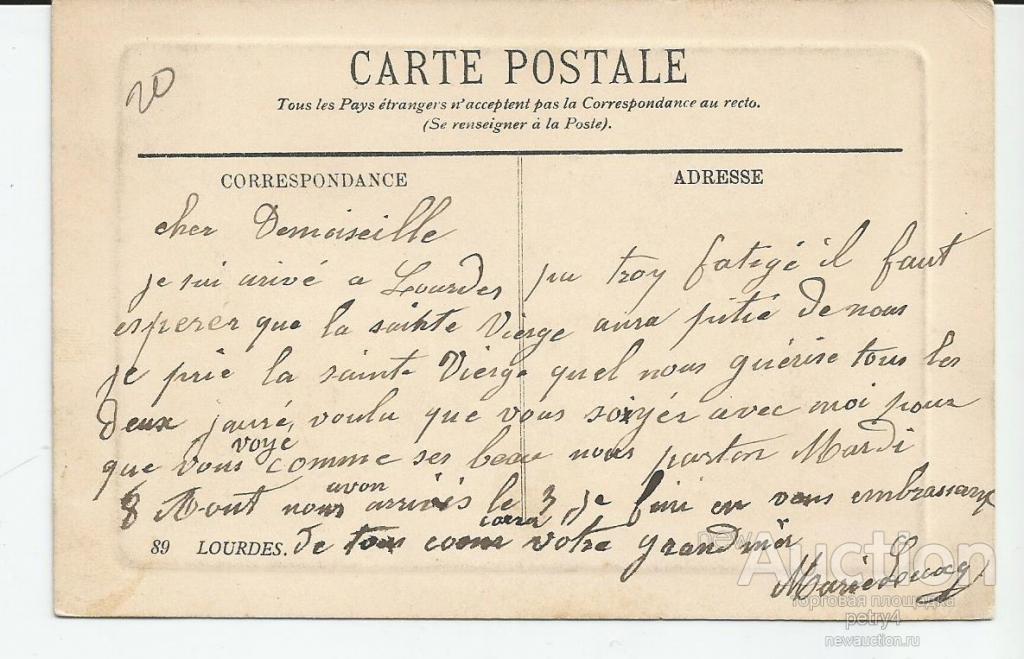 20
CARTE POSTALE
Tous les Pays étrangers n'acceptent pas la Correspondance au recto.
(Se renseigner à la Poste).
CORRESPONDANCE
ADRESSE
cher Demoiseille
je sui arivé a Lourdes pa troy fatigé il faut
esperer que la sainte Vierge aura pitié de nous
je prie la sainte Vierge quel nous guérise tous les
deux jauré voulu que vous soiyér avec moi pour
que vous voye comme ses beau nous parton Mardi
8 Aout nous avon arrivés le 3 je fini en vous embrassant
89 LOURDES. de tous coeur votre grandmèr
Marie
newauction
Auction
торговая площадка
petry4
newauction.ru